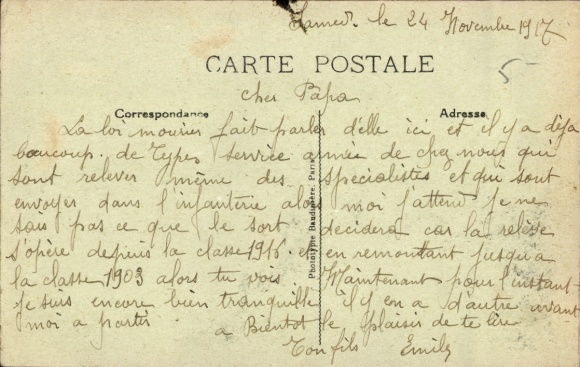 Samedi le 24 Novembre 1917
CARTE POSTALE
5
cher Papa
Correspondance
Adresse
La loi mourier fait parler d'elle ici et il y a déja
beaucoup de Types service armée de chez nous qui
sont relever même des spécialistes et qui sont
envoyer dans l'infanterie alors moi j'attend je ne
sais pas ce que le sort decidera car la relève
s'opère depuis la classe 1916 et en remontant jusqu'a
la classe 1903 alors tu vois Maintenant pour l'instant
je suis encore bien tranquille il y en a d'autre avant
moi a partir a Bientot le plaisir de te lire
Ton fils Emile
Phototype Baudinière, Paris